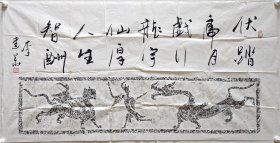 伏虎戲龍仙人智
踏月行宇厚生酬